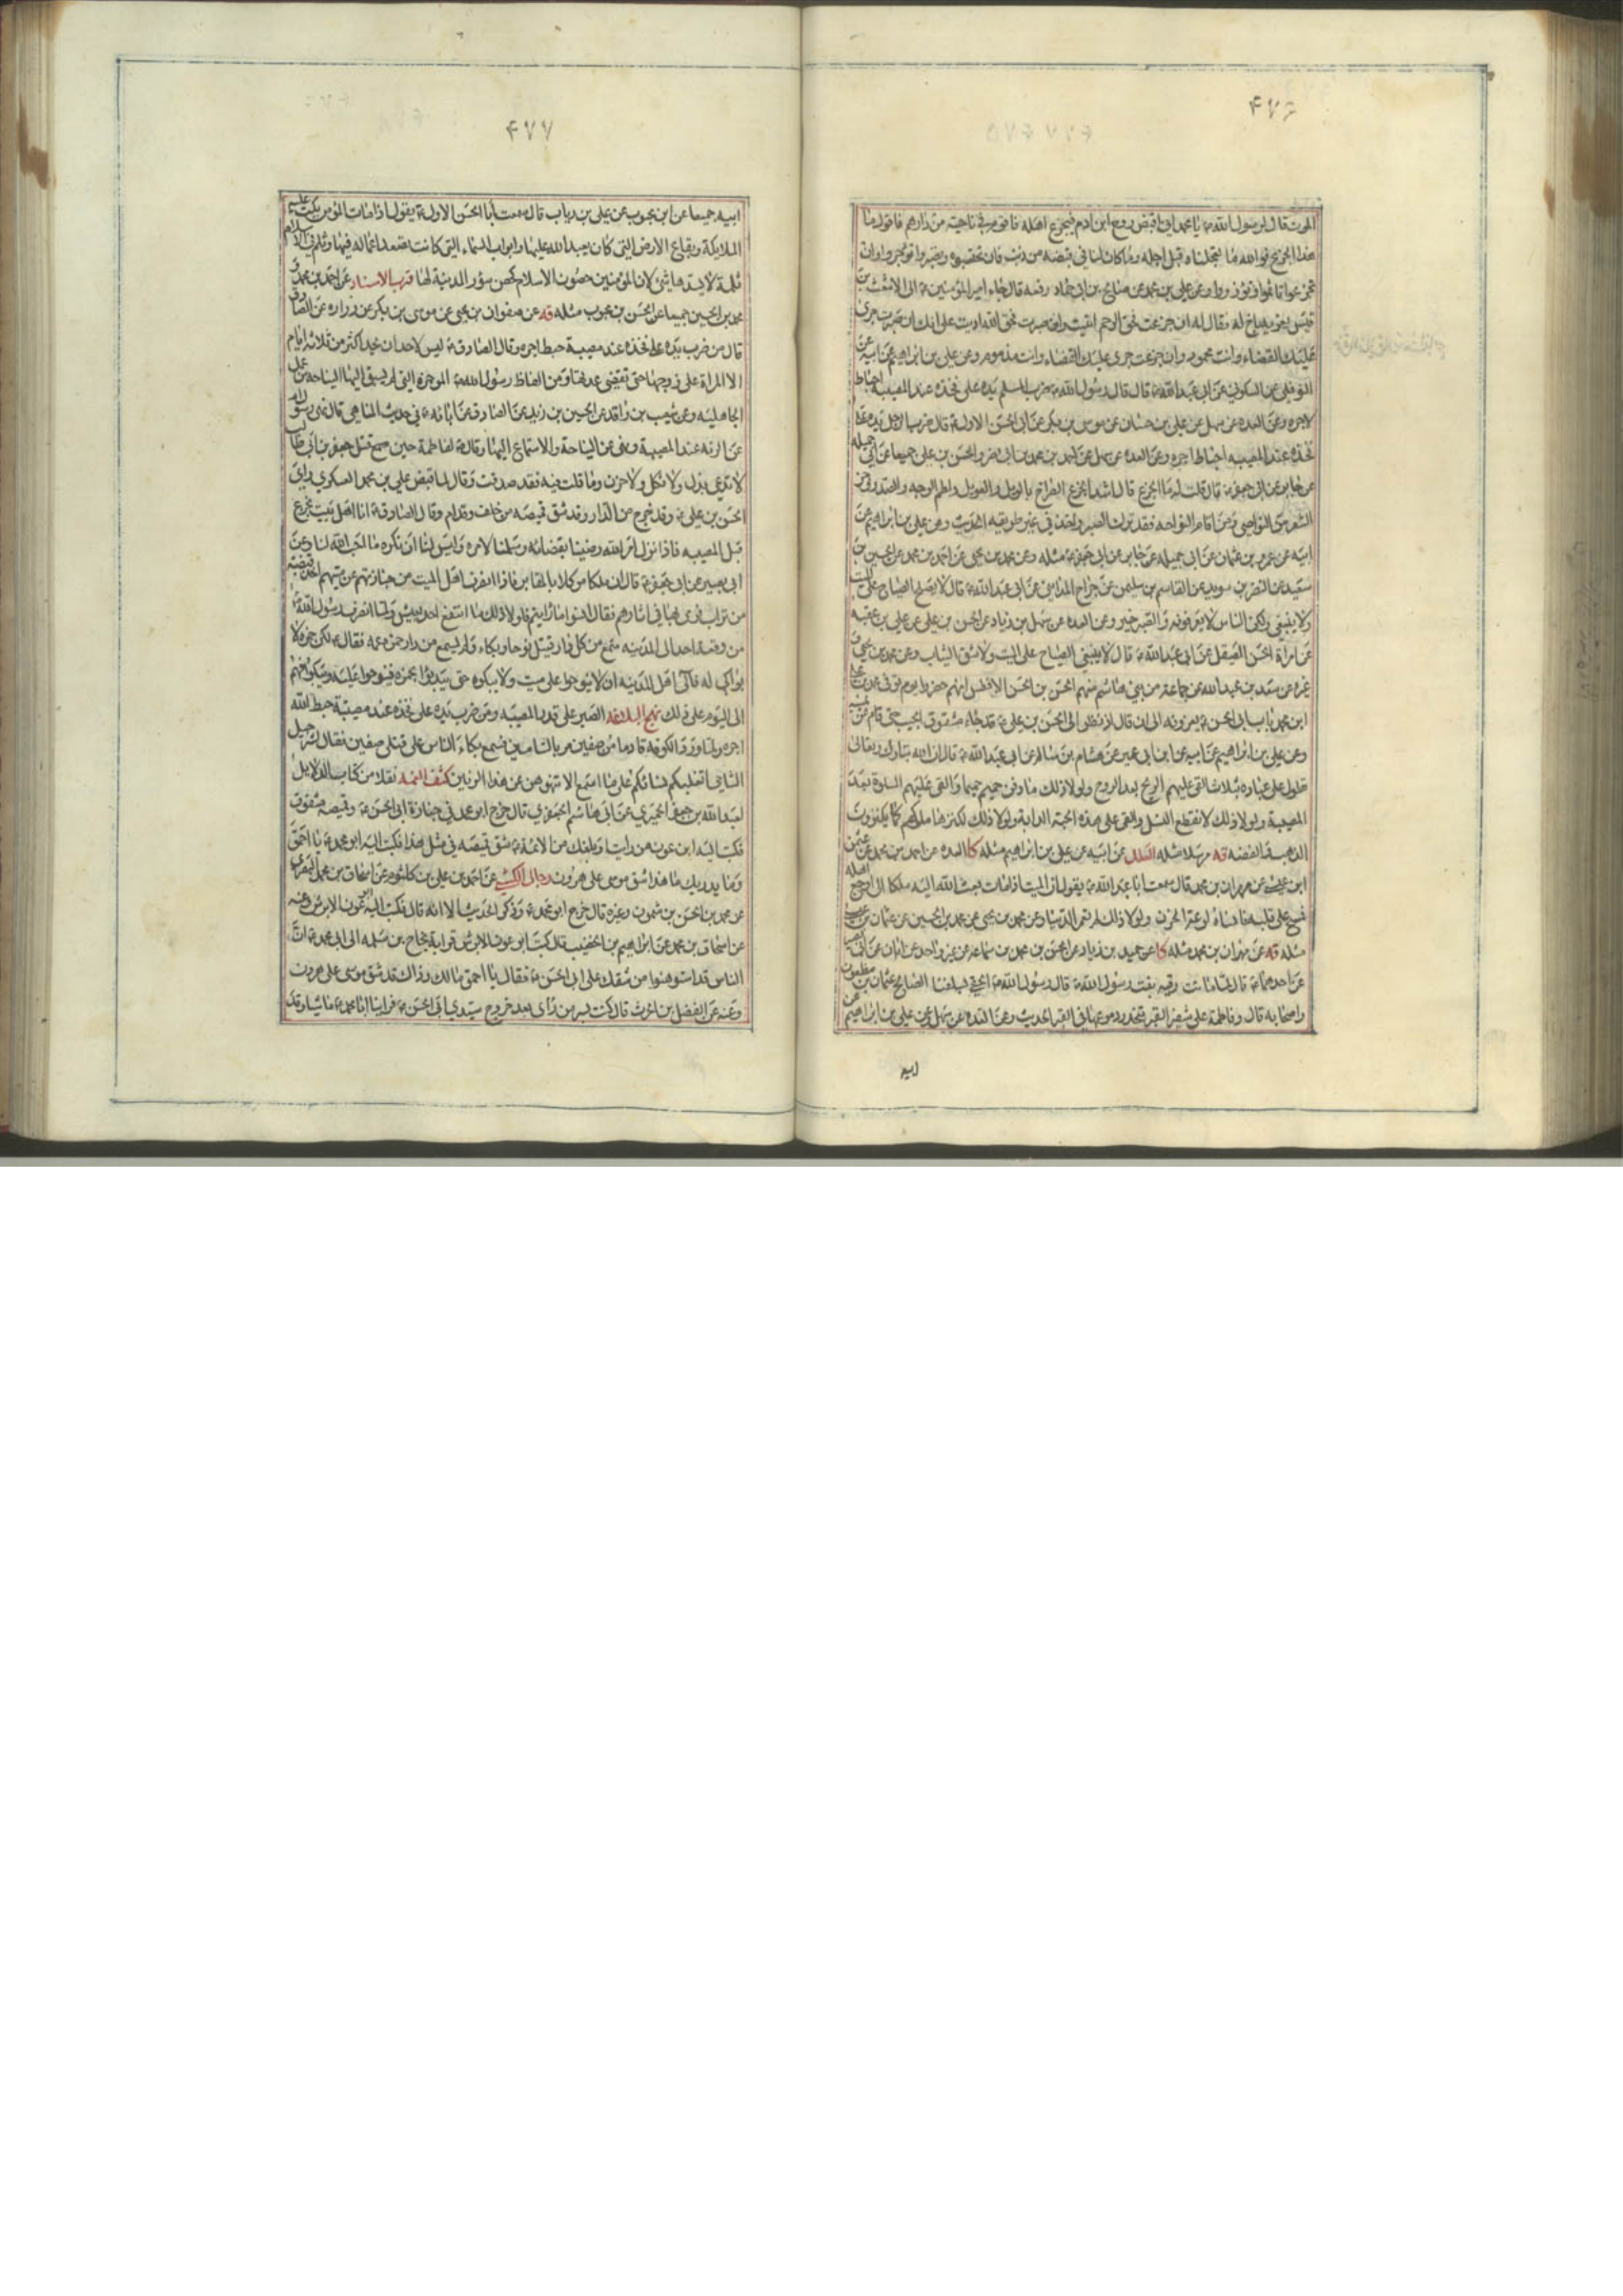 ۴۷۶
الموت قال لرسول الله ص يا محمد اني اقبض روح ابن ادم فيجزع اهله فاقوم في ناحية من دارهم فاقول ما
هذا الجزع فوالله ما تعجلناه قبل اجله وما كان لنا في قبضه من ذنب فان تحتسبوه وتصبروا توجروا وان
تجزعوا تاثموا وتوزروا وعن علي بن محمد عن صالح بن ابي حماد رفعه قال جاء امير المؤمنين ع الى الاشعث بن
قيس يعزيه باخ له فقال له ان جزعت فحق الرحم اتيت وان صبرت فحق الله اديت على انك ان صبرت جرى
عليك القضاء وانت محمود وان جزعت جرى عليك القضاء وانت مذموم وعن علي بن ابراهيم عن ابيه عن
النوفلي عن السكوني عن ابي عبد الله ع قال قال رسول الله ص ضرب المسلم يده على فخذه عند المصيبة احباط
لاجره وعن العده عن سهل عن علي بن حسان عن موسى بن بكر عن ابي الحسن الاول ع قال ضرب الرجل يده على
فخذه عند المصيبه احباط اجره وعن العده عن سهل عن احمد بن محمد بن ابي نصر والحسن بن علي جميعا عن ابي جميله
عن جابر عن ابي جعفر ع قال قلت له ما الجزع قال اشد الجزع الصراخ بالويل والعويل ولطم الوجه والصدر وجز
الشعر من النواصي ومن اقام النواحه فقد ترك الصبر واخذ في غير طريقه الحديث وعن علي بن ابراهيم عن
ابيه عن عمرو بن عثمان عن ابي جميله عن جابر عن ابي جعفر ع مثله وعن محمد بن يحيى عن احمد بن محمد عن الحسين بن
سعيد عن النضر بن سويد عن القاسم بن سليمن عن جراح المدايني عن ابي عبد الله ع قال لا يصلح الصياح على الميت
ولا ينبغي ولكن الناس لا يعرفونه والصبر خير وعن العده عن سهل بن زياد عن الحسن بن علي عن علي بن عقبه
عن امراة الحسن الصيقل عن ابي عبد الله ع قال لا ينبغي الصياح على الميت ولا شق الثياب وعن محمد بن يحيى و
غيره عن سعد بن عبد الله عن جماعة من بني هاشم منهم الحسن بن الحسن الافطس انهم حضروا يوم توفي محمد بن علي
ابن محمد باب ابي الحسن ع يعزونه الى ان قال اذ نظر الى الحسن بن علي ع قد جاء مشقوق الجيب حتى قام عن يمينه
وعن علي بن ابراهيم عن ابيه عن ابن ابي عمير عن هشام بن سالم عن ابي عبد الله ع قال ان الله تبارك وتعالى
تطول على عباده بثلاث القى عليهم الريح بعد الروح ولولا ذلك ما دفن حميم حميما والقى عليهم السلوة بعد
المصيبة ولولا ذلك لانقطع النسل والقى على هذه الحبة الدابة ولولا ذلك لكنزها ملوكهم كما يكنزون
الذهب والفضه قه مرسلا مثله العلل عن ابيه عن علي بن ابراهيم مثله كا العده عن احمد بن محمد عن عثمن
ابن عيسى عن مهران بن محمد قال سمعت ابا عبد الله ع يقول ان الميت اذا مات بعث الله اليه ملكا الى اوجع اهله
فمسح على قلبه فانساه لوعة الحزن ولولا ذلك لم تعمر الدنيا وعن محمد بن يحيى عن محمد بن الحسين عن عثمان بن عيسى
مثله قه عن مهران بن محمد مثله كا عن حميد بن زياد عن الحسن بن محمد بن سماعه عن غير واحد عن ابان عن ابي بصير
عن احدهما ع قال لما ماتت رقيه بنت رسول الله ص قال رسول الله ص الحقي بسلفنا الصالح عثمان بن مظعون
واصحابه قال وفاطمة على شفير القبر تنحدر دموعها في القبر الحديث وعن العده عن سهل وعن علي بن ابراهيم عن
ابيه
۴۷۷
ابيه جميعا عن ابن محبوب عن علي بن رياب قال سمعت ابا الحسن الاول ع يقول اذا مات المؤمن بكت عليه
الملايكة وبقاع الارض التي كان يعبد الله عليها وابواب السماء التي كانت يصعد اعماله فيها وثلم في الاسلام
ثلمة لا يسدها شئ لان المؤمنين حصون الاسلام كحصن سور المدينة لها قرب الاسناد عن احمد بن محمد و
محمد بن الحسين جميعا عن الحسن بن محبوب مثله قه عن صفوان بن يحيى عن موسى بن بكر عن زراره عن الصادق
قال من ضرب يده على فخذه عند مصيبة حبط اجره وقال الصادق ع ليس لاحد ان يحد اكثر من ثلاثة ايام
الا المراة على زوجها حتى تقضي عدتها ومن الفاظ رسول الله ص الموجزه التي لم يسبق اليها النياحه من عمل
الجاهليه وعن شعيب بن واقد عن الحسين بن زيد عن الصادق عن ابائه ع في حديث المناهي قال نهى رسول الله
عن الرنه عند المصيبة ونهى عن النياحة والاستماع اليها وقال ع لفاطمة حين قتل جعفر بن ابي طالب
لا تدعي بذل ولا ثكل ولا حزن وما قلت فيه فقد صدقت وقال لما قبض علي بن محمد العسكري رؤي
الحسن بن علي ع وقد خرج من الدار وقد شق قميصه من خلف وقدام وقال الصادق ع انا اهل بيت نجزع
قبل المصيبه فاذا نزل امر الله رضينا بقضائه وسلمنا لامره وليس لنا ان نكره ما احب الله لنا وعن
ابي بصير عن ابي جعفر ع قال ان ملكا موكلا بالمقابر فاذا انصرف اهل الميت من جنازتهم عن ميتهم اخذ قبضة
من تراب فرمى بها في اثارهم فقال انسوا ما رايتم فلولا ذلك ما انتفع احد بعيش ولما انصرف رسول الله ص
من وقعة احد الى المدينه سمع من كل دار قتيل نوحا وبكاء ولم يسمع من دار حمزه عمه فقال ع لكن حمزه لا
بواكي له فآلى اهل المدينه ان لا ينوحوا على ميت ولا يبكوه حتى يبدؤا بحمزه فينوحوا عليه ويبكوه فهم
الى اليوم على ذلك نهج البلاغه الصبر على قدر المصيبه ومن ضرب يده على فخذه عند مصيبة حبط الله
اجره ولما ورد الكوفه قادما من صفين مر بالشاميين فسمع بكاء النساء على قتلى صفين فقال لشرحبيل
الشامي اتغلبكم نساؤكم على ما اسمع الا تنهونهن عن هذا الرنين كشف الغمه نقلا من كتاب الدلايل
لعبد الله بن جعفر الحميري عن ابي هاشم الجعفري قال خرج ابو محمد في جنازة ابي الحسن ع وقميصه مشقوق
فكتب اليه ابن عون من رايت او بلغك من الائمة ع شق قميصه في مثل هذا فكتب اليه ابو محمد ع يا احمق
وما يدريك ما هذا شق موسى على هرون رجال الكشي عن احمد بن علي بن كلثوم عن اسحاق بن محمد البصري
عن محمد بن الحسن بن شمون وغيره قال خرج ابو محمد ع وذكر الحديث الا انه قال فكتب اليه ابو عون الابرش وعنه
عن اسحاق بن محمد عن ابراهيم بن الخضيب قال كتب ابو عون الابرش قرابة نجاح بن سلمه الى ابي محمد ع ان
الناس قد استوهنوا من شقك على ابي الحسن ع فقال يا احمق مالك وذاك قد شق موسى على هرون
وعنه عن الفضل بن الحرث قال كنت بسر من راى بعد خروج سيدي ابي الحسن ع فراينا ابا محمد ع ماشيا وقد